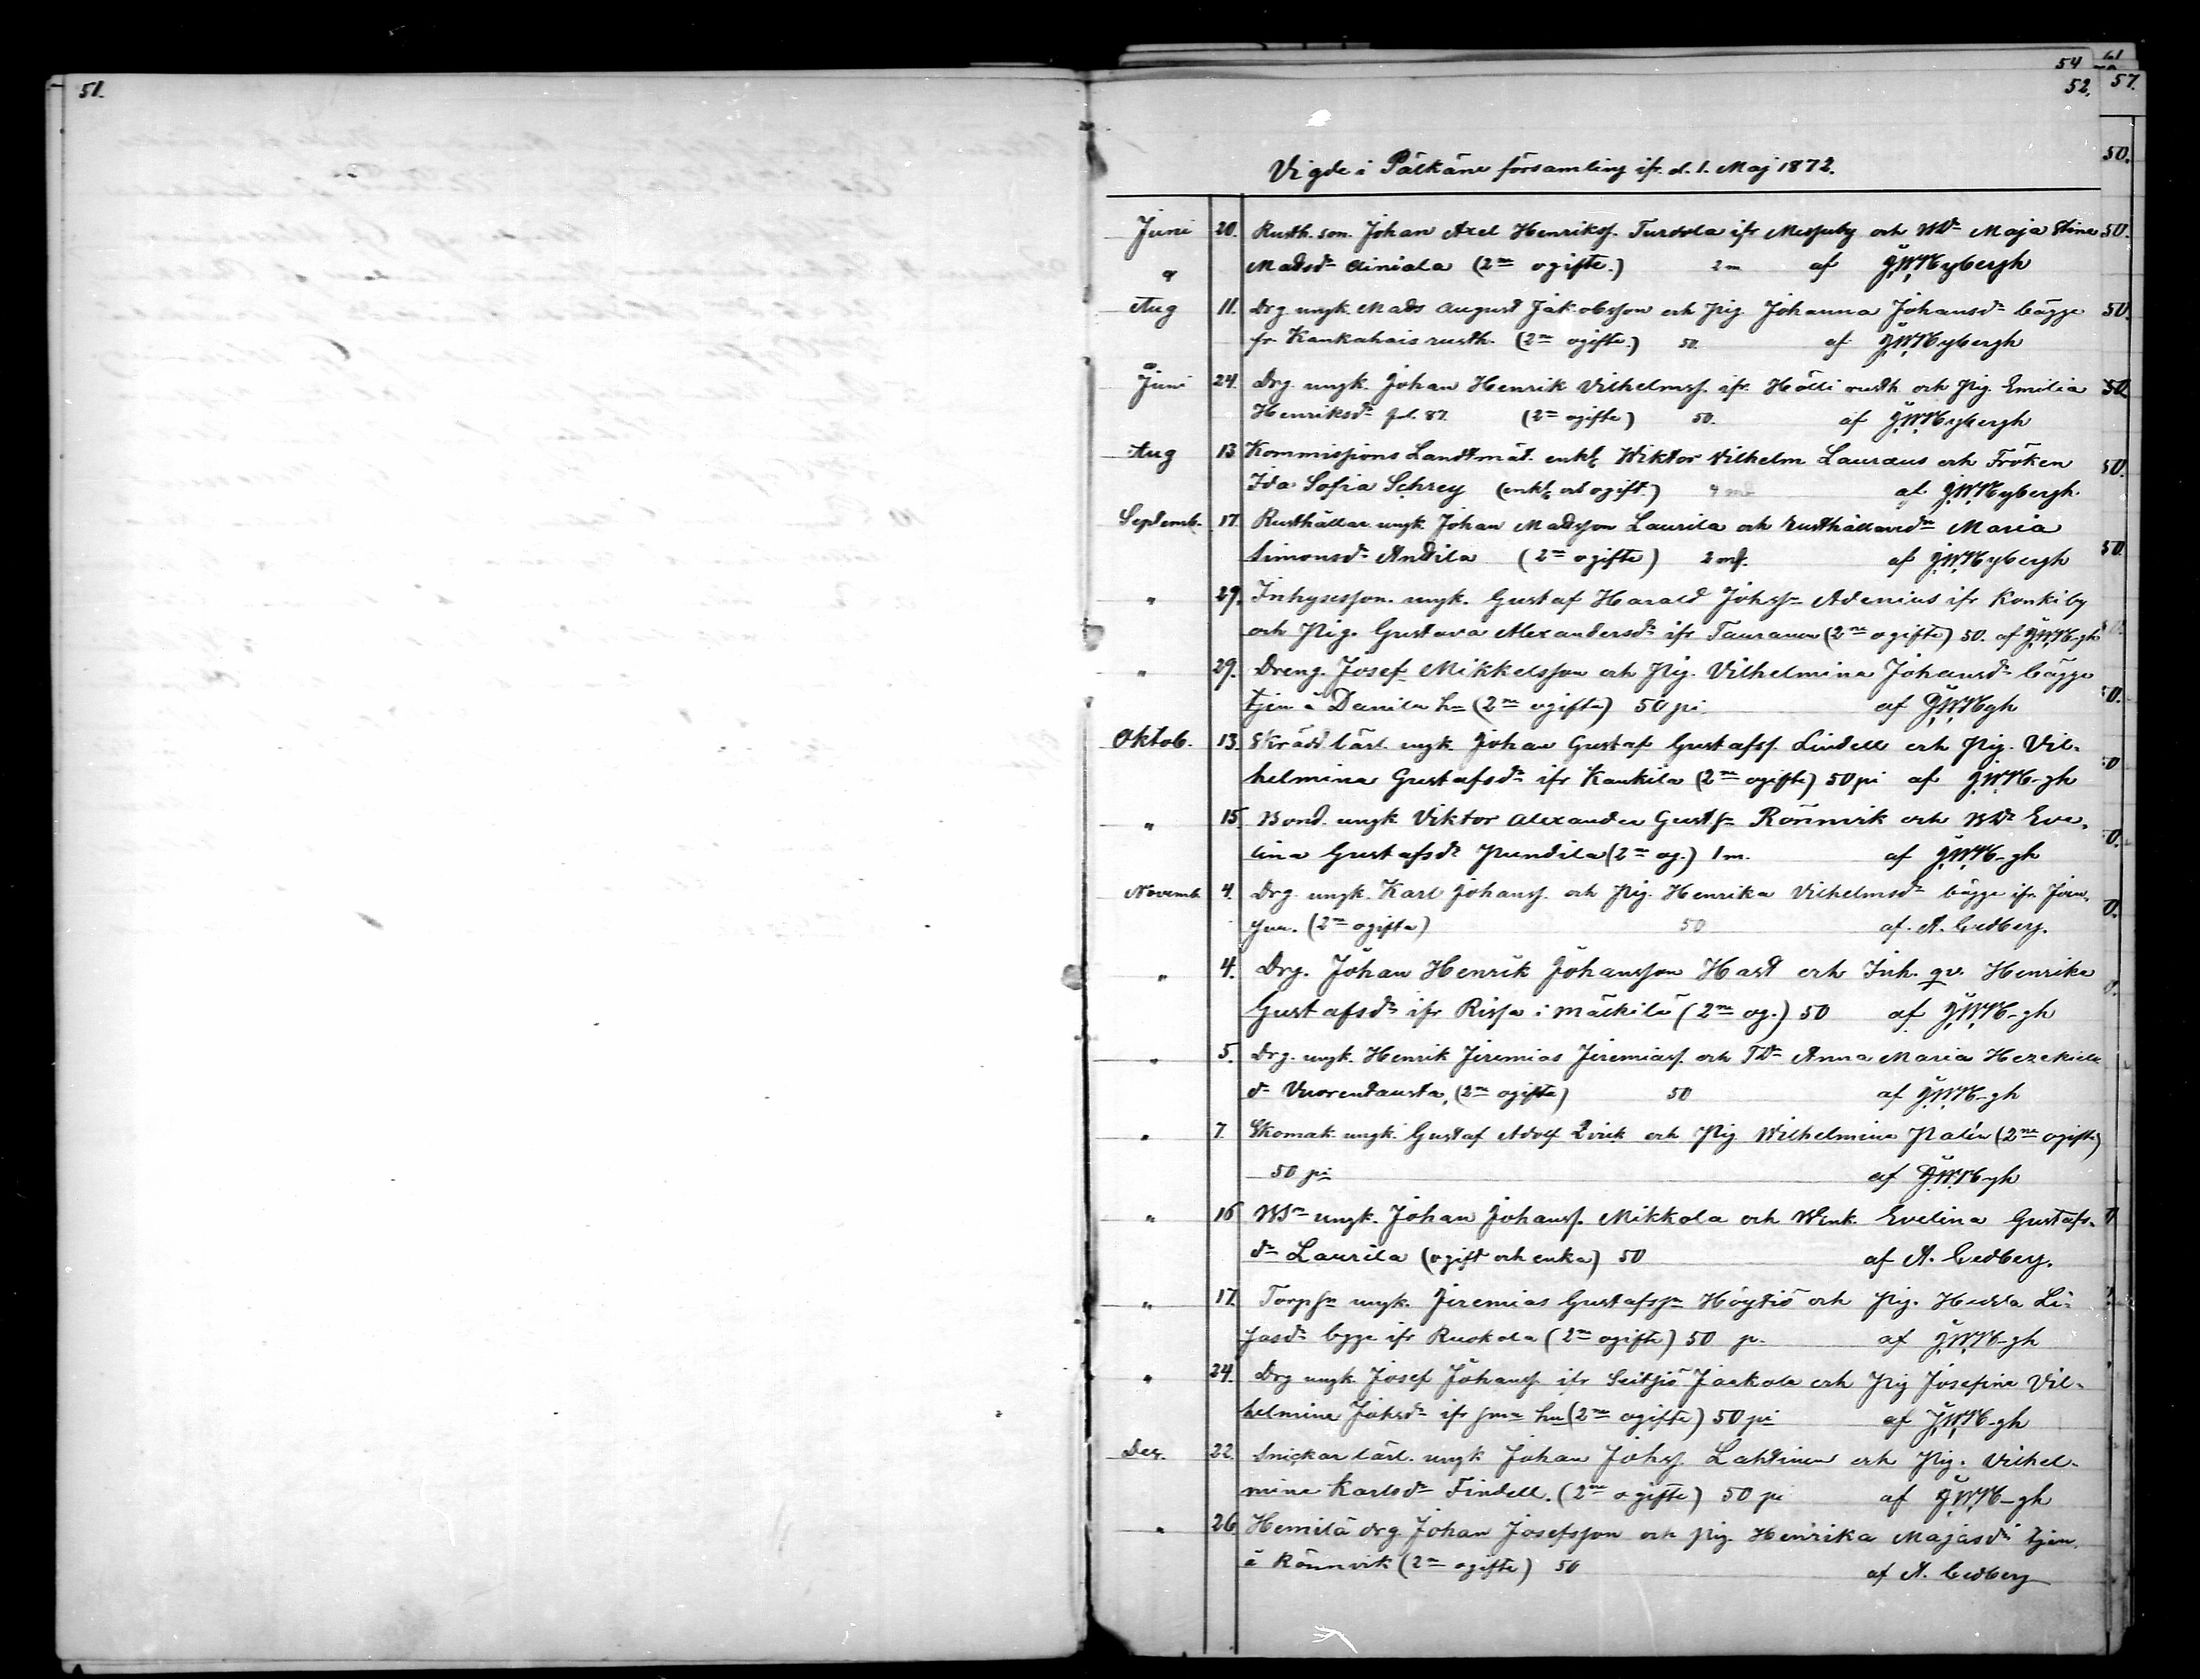 51.
54
61
52.
57.
Vigde i Pälkäne församling ifr. d. 1. Maj 1872.
Juni 20. Rusth. son. Johan Axel Henrikss. Turvola ifr och Maja Stina
Madsdr Ainiala (2ne ogifte.) 2 m af
Aug 11. Drg ungk. Mads August Jakobsson och Pig. Johanna Johansdr bägge
fr. Kankahais rusth. (2ne ogifte.) 50. af
Juni 24. Drg ungk. Johan Henrik Vilhelmss. ifr. Hölli rusth och Pig. Emilia
Henriksdr (2ne ogifte) 50. af
Aug 13 Kommissions Landtmät. enkl. Wiktor Vilhelm Lauraeus och Fröken
Ida Sofia Schrey (enkl. och ogift.) af
Septemb. 17. Rusthållar. ungk. Johan Madsson Laurila och rusthållaredr Maria
Simonsdr Andila (2ne ogifte) 2 mk. af
" 29. Inhysesson. ungk. Gustaf Harald Johssn Adenius ifr Konkiby
och Pig. Gustava Alexandersdr ifr (2ne ogifte) 50. af
" 29. Dreng. Josef Mikkelsson och Pig. Vilhelmina Johansdr bägge
tjen. å Danila hn (2ne ogifta) 50 pi af
Oktob. 13. Skrädd. lärl. ungk. Johan Gustaf Gustafss. Lindell och Pig. Vil-
helmina Gustafsdr ifr Kankila (2ne ogifte) 50 pi af
" 15. Bond. ungk. Viktor Alexander Gustssn Rönnvik och Bdr Eve-
lina Gustafsdr Pundila (2ne og.) 1 m. af
Novemb. 4. Drg. ungk. Karl Johanss. och Pig. Henrika Vilhelmsdr bägge ifr
(2ne ogifta) 50 af A. Cedberg.
" 4. Drg. Johan Henrik Johansson Hast och Inh. qv. Henrika
Gustafsdr ifr Rissa i Mälkilä (2ne og.) 50 af
" 5. Drg. ungk. Henrik Jeremias Jeremiass. och Tdr Anna Maria Hezekiels
dr Vuorentausta, (2ne ogifta) 50 af
" 7. Skomak. ungk. Gustaf Adolf Qvick och Pig Wilhelmina Palén (2ne ogifte)
50 pi af
" 16 Bsn ungk. Johan Johanss. Mikkola och Benk. Evelina Gustafs-
dr Laurila (ogift och enka) 50 af A. Cedberg.
" 17. Torpsn ungk. Jeremias Gustafssn Höytiö och Pig. Hedda Li-
sasdr bgge ifr Ruokola (2ne ogifte) 50 p. af
" 24. Drg ungk. Josef Johanss. ifr Jaakola och Pig Josefina Vil-
helmina Johsdr ifr hn (2ne ogifte) 50 pi af
Dec. 22. Snickar lärl. ungk Johan Johss. Lahtinen och Pig. Vilhel-
mina Karlsdr Findell. (2ne ogifte) 50 pi af
" 26 Hemilä drg Johan Josefsson och Pig. Henrika Majasdr tjen.
å Rönnvik (2ne ogifte) 50 af A. Cedberg